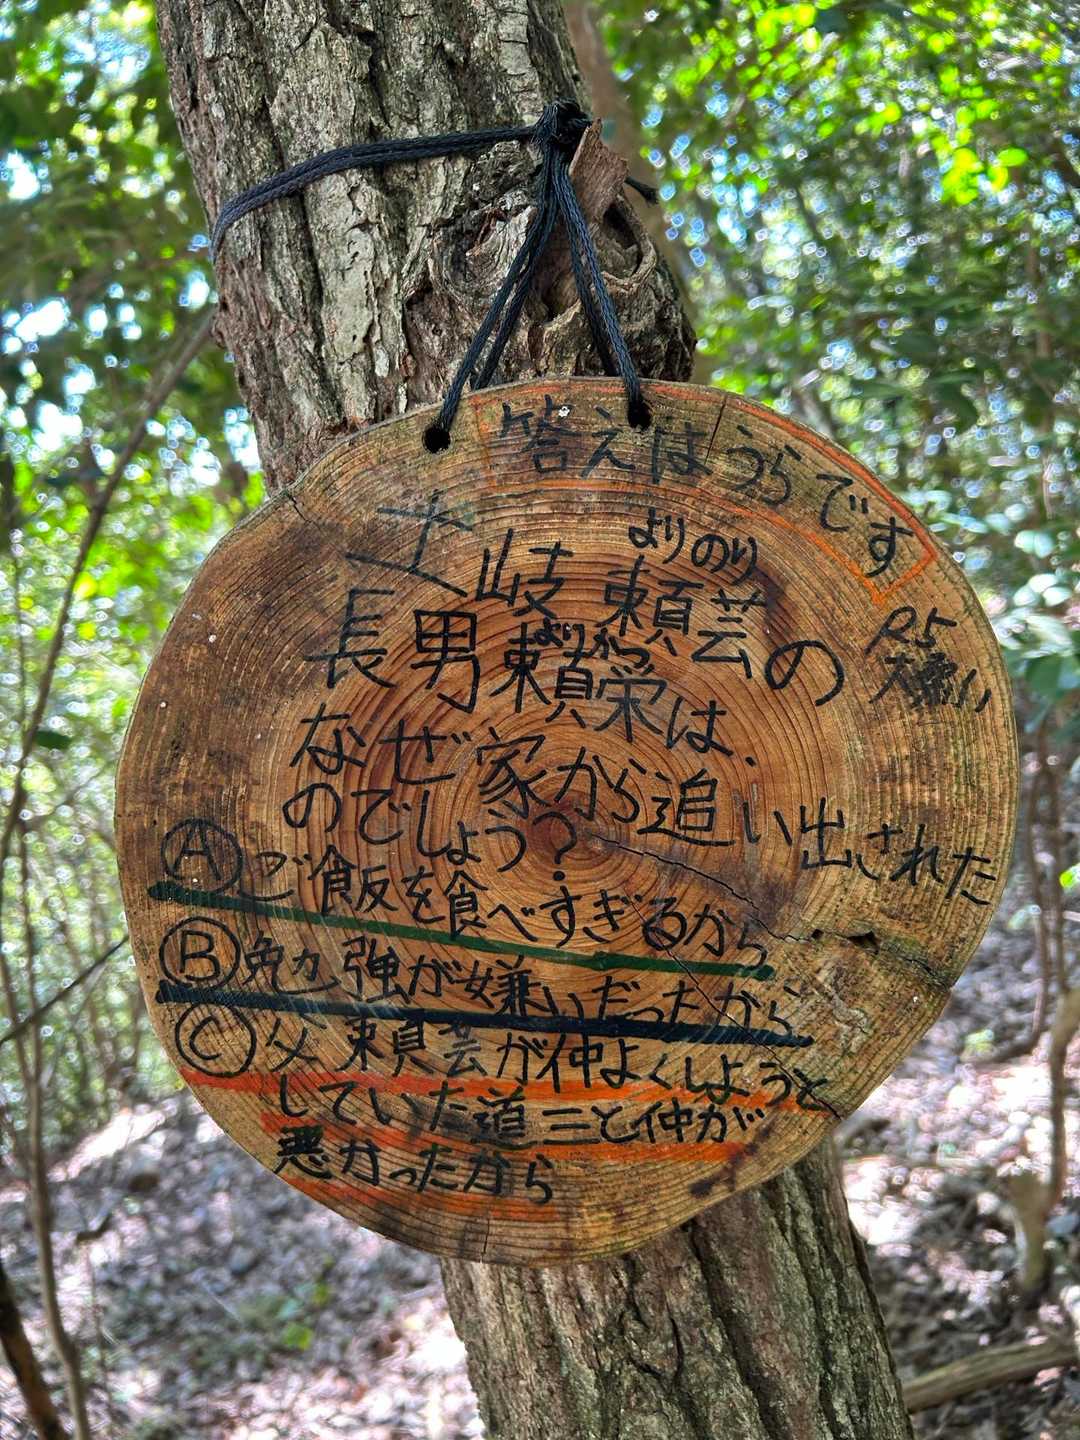 答えはうらです
土岐頼芸の
よりのり
長男頼栄は、
よりかつ
なぜ家から追い出された
のでしょう?
Ⓐご飯を食べすぎるから
Ⓑ勉強が嫌いだったから
Ⓒ父頼芸が仲よくしようと
していた道三と仲が
悪かったから
R5